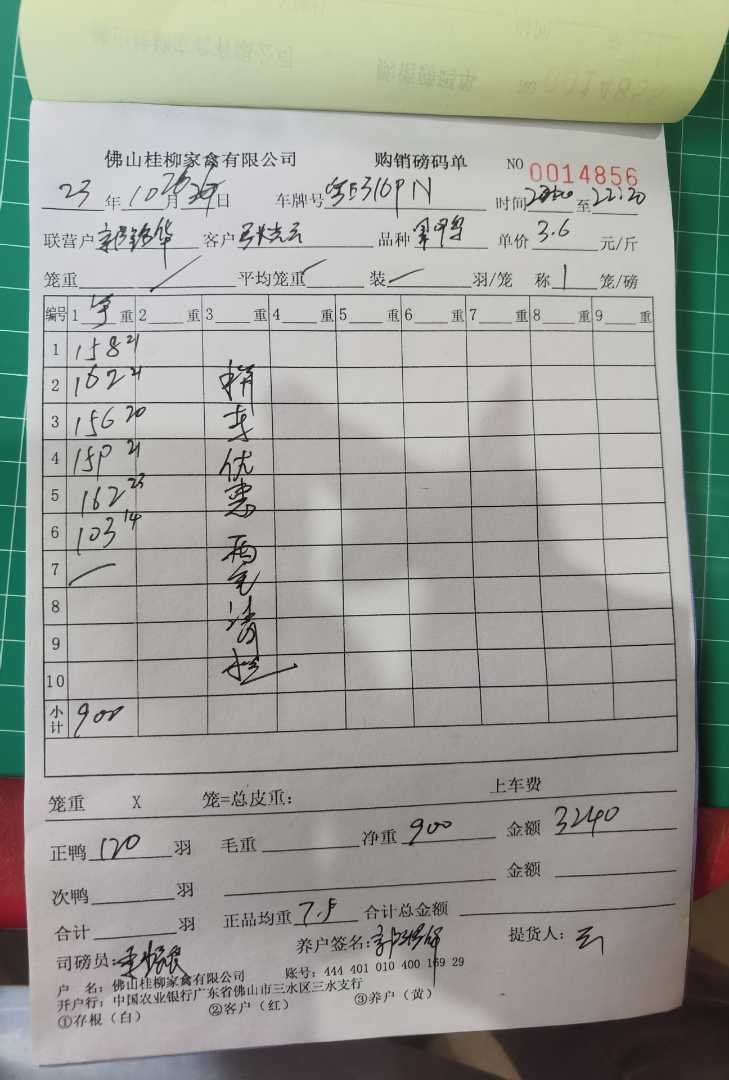 佛山桂柳家禽有限公司 购销磅码单 NO 0014856
23年10月26日 车牌号 时间 至22:20
联营户 客户 品种 单价3.6元/斤
笼重 平均笼重 装 羽/笼 称1笼/磅
编号 1净重 2重 3重 4重 5重 6重 7重 8重 9重
1 158 21
2 162 21
3 156 20
4 159 21
5 162 23
6 103 14
7
8
9
10
优惠两毛
小计 900
笼重 X 笼=总皮重: 上车费
正鸭120羽 毛重 净重900 金额3240
次鸭 羽 金额
合计 羽 正品均重7.5 合计总金额
司磅员: 养户签名: 提货人:
户 名: 佛山桂柳家禽有限公司 账号: 444 401 010 400 169 29
开户行: 中国农业银行广东省佛山市三水区三水支行
①存根(白) ②客户(红) ③养户(黄)